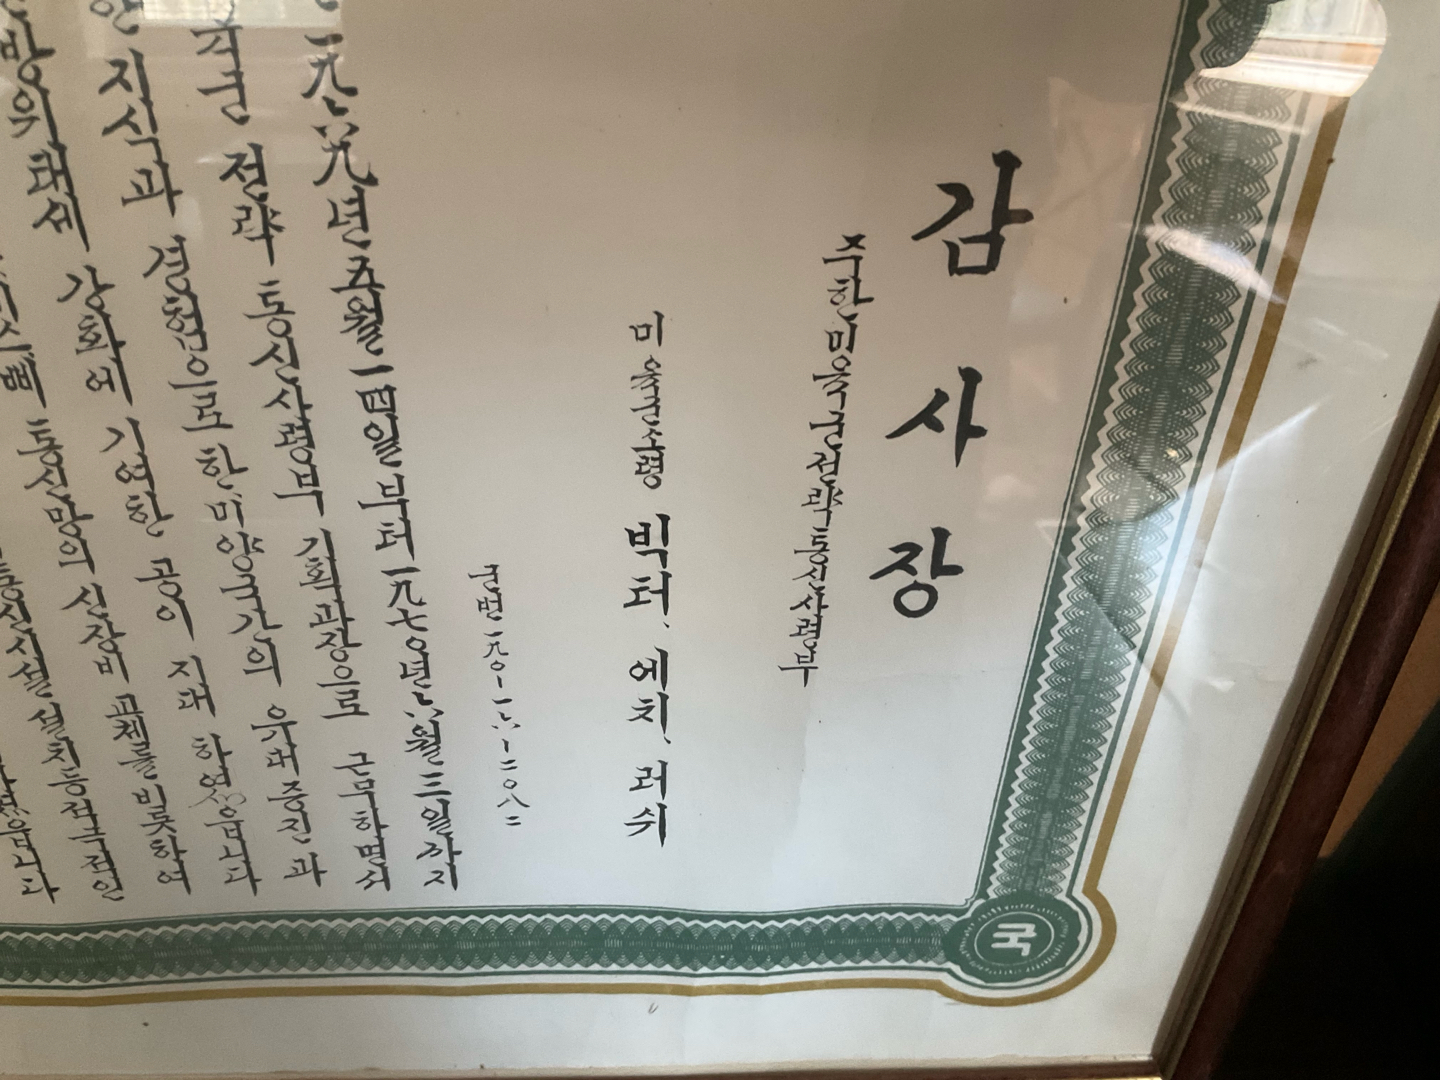 감사장
주한미육군전략통신사령부
미육군소령 빅터. 에치. 러쉬
군번一九○-一六-二○八二
一九六九년五월一四일부터一九七○년六월三일까지
전략 통신사령부 기획과장으로 근무하면서
지식과 경험으로 한미양국간의 유대증진과
방위태세 강화에 기여한 공이 지대 하였습니다
통신망의 신장비 교체를 비롯하여
통신시설 설치등적극적인
국